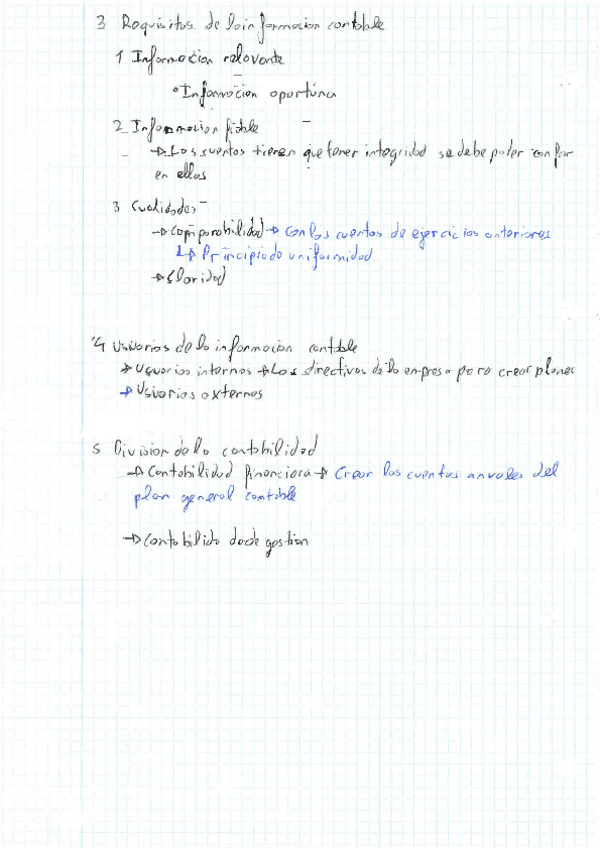 3 Requisitos de la informacion contable
1 Informacion relevante
° Informacion oportuna
2 Informacion fiable
→ Las cuentas tienen que tener integridad se debe poder confiar
en ellas
3 Cualidades
→ Comparabilidad → Con las cuentas de ejercicios anteriores
↳ Principio de uniformidad
→ Claridad
4 Usuarios de la informacion contable
→ Usuarios internos → Los directivos de la empresa para crear planes
→ Usuarios externos
5 Division de la contabilidad
→ Contabilidad financiera → Crear las cuentas anuales del
plan general contable
→ Contabilida de gestion